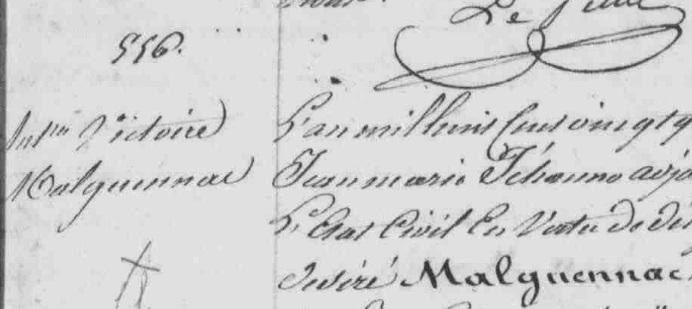 Le
556.
Victoire
Malguennac
L'an mil huit cent vingt q
Jean marie Jehanno adjo
L'Etat Civil En Vertu de dé
Désiré Malguennac